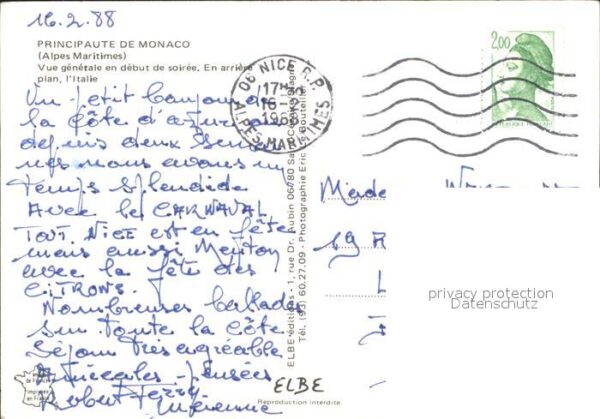 16.2.88
PRINCIPAUTE DE MONACO
(Alpes Maritimes)
Vue générale en début de soirée. En arrière
plan, l'Italie
Un petit bonjour de
la Côte d'azur
depuis deux semai
nes nous avons un
Temps splendide
AVEC le CARNAVAL
TOUT NICE est en fête
mais aussi Menton
avec la fête des
CITRONS.
Nombreuses ballades
sur toute la Côte
Séjour Très agréable
Amicales Pensées
Robert
ELBE
Reproduction interdite
ELBE éditions - 1, rue Dr. Aubin 06780 Sa
Tél. (93) 60.27.09 - Photographie Eric Bouteille
06 NICE R.P.
17H
16-2
1988
ALPES MARITIMES
2,00
Made
19
privacy protection
Datenschutz